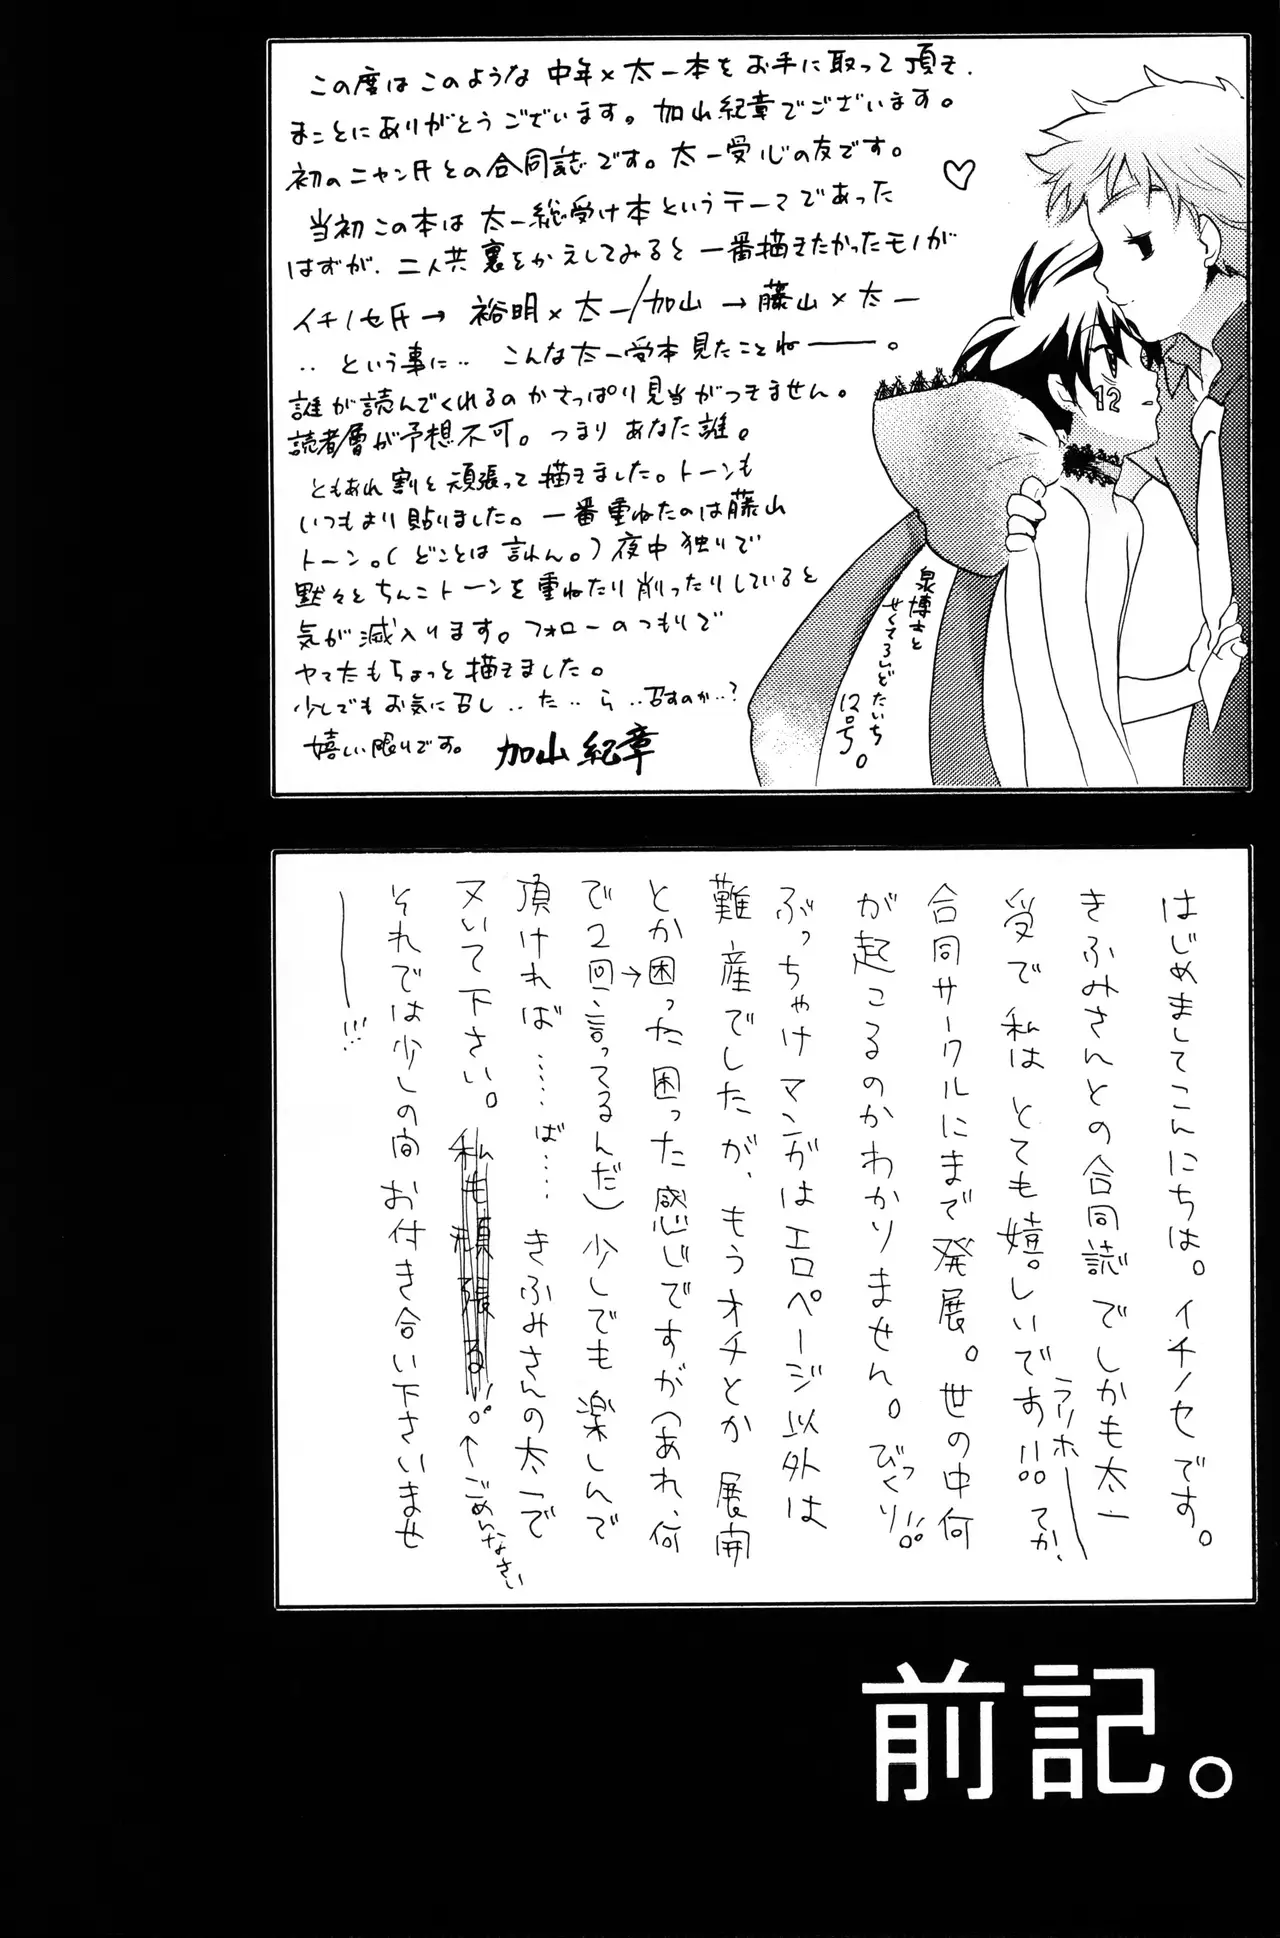 この度はこのような中年×太一本をお手に取って頂き、
まことにありがとうございます。加山紀章でございます。
初のニャン氏との合同誌です。太一受心の友です。
当初この本は太一総受け本というテーマであった
はずが、二人共裏をかえしてみると一番描きたかったモノが
イチノセ氏→裕明×太一/加山→藤山×太一
‥という事に‥こんな太一受本見たことねー。
誰が読んでくれるのかさっぱり見当がつきません。
読者層が予想不可。つまりあなた誰。
ともあれ割と頑張って描きました。トーンも
いつもより貼りました。一番重ねたのは藤山
トーン。(どことは言わん。)夜中独りで
黙々とちんこトーンを重ねたり削ったりしていると
気が滅入ります。フォローのつもりで
ヤマ太もちょっと描きました。
少しでもお気に召し‥た‥ら‥召すのか‥?
嬉しい限りです。 加山紀章
12
泉博士と
せくてろいどたいち
12号。
はじめましてこんにちは。イチノセです。
きふみさんとの合同誌でしかも太一
受で私はとても嬉しいです!!。てか、
ラリホー
合同サークルにまで発展。世の中何
が起こるのかわかりません。びっくり!!。
ぶっちゃけマンガはエロページ以外は
難産でしたが、もうオチとか展開
とか困った困った感じですが(あれ、何
で2回→言ってるんだ)少しでも楽しんで
頂ければ……ば……きふみさんの太一で
又いて下さい。私も頑張る!!。←ごめんなさい
それでは少しの間お付き合い下さいませ
ー!!!
前記。